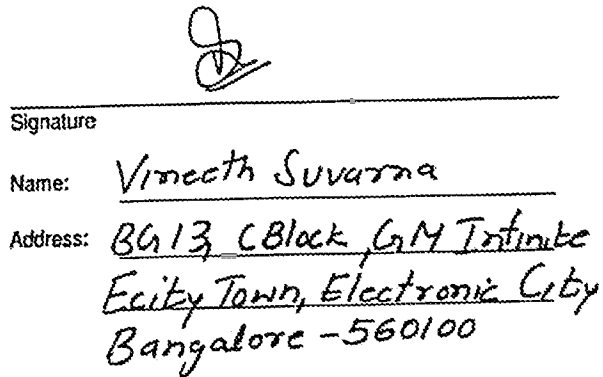 Signature
Name: Vineeth Suvarna
Address: BG13, C Block, GM Infinite
Ecity Town, Electronic City
Bangalore - 560100